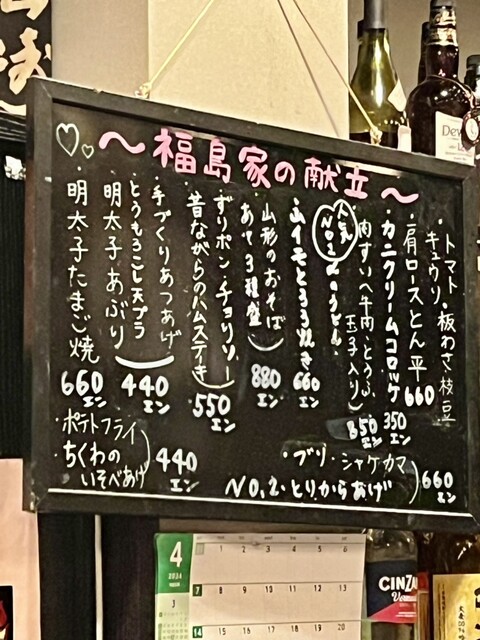 〜福島家の献立〜
・トマト・板わさ・枝豆
キュウリ
・肩ロースとん平
660
・カニクリームコロッケ
350
エン
・肉すい(牛肉・とうふ
玉子入り)
850
エン
人気
No.1
・山イモとろろ焼き
660
エン
・山形のおそば
・あて3種盛
880
エン
・ずりポン・チョリソー
・昔ながらのハムステーキ
550
エン
・手づくりあつあげ
・とうもろこし天プラ
・明太子あぶり
440
エン
・明太子たまご焼
660
エン
・ポテトフライ
・ちくわの
いそべあげ
440
エン
・ブリ・シャケカマ
No.2・とりからあげ
660
エン
4
2024
3
1 2 3 4 5 6
7 8 9 10 11 12 13
14 15 16 17 18 19 20
CINZA
Dew